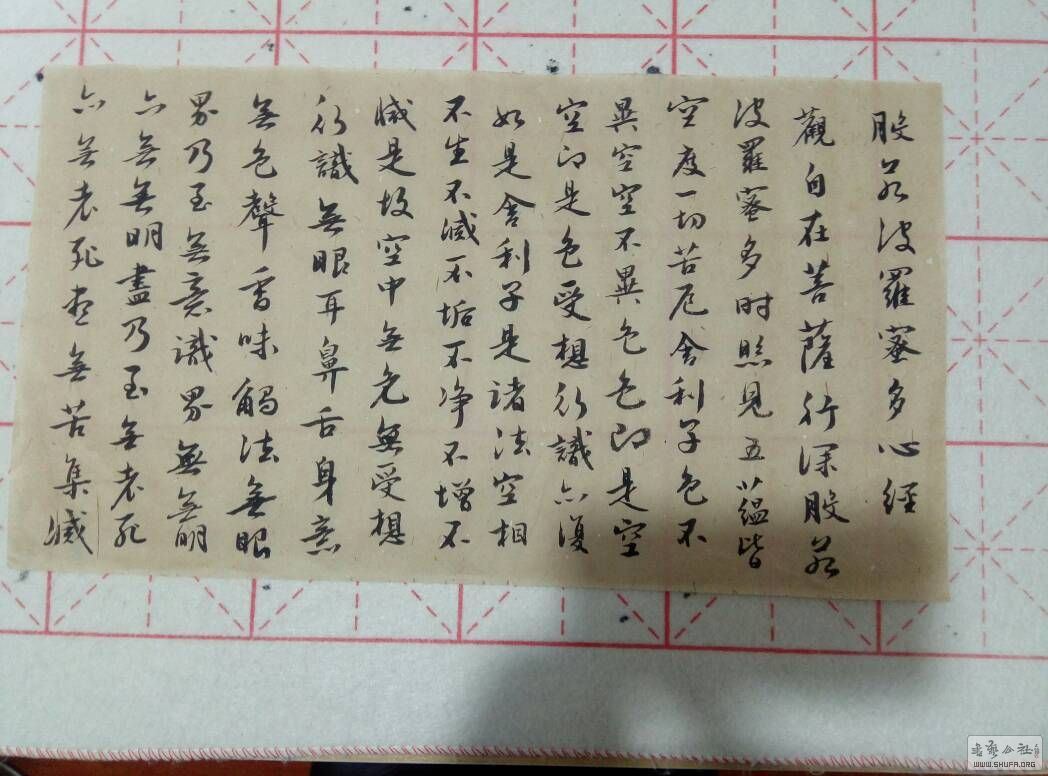 般若波羅蜜多心經
觀自在菩薩行深般若
波羅蜜多时照見五蘊皆
空度一切苦厄舍利子色不
異空空不異色色即是空
空即是色受想行識亦復
如是舍利子是諸法空相
不生不滅不垢不净不增不
滅是故空中無色無受想
行識無眼耳鼻舌身意
無色聲香味觸法無眼
界乃至無意識界無無明
亦無無明盡乃至無老死
亦無老死盡無苦集滅
WWW.SHUFA.ORG